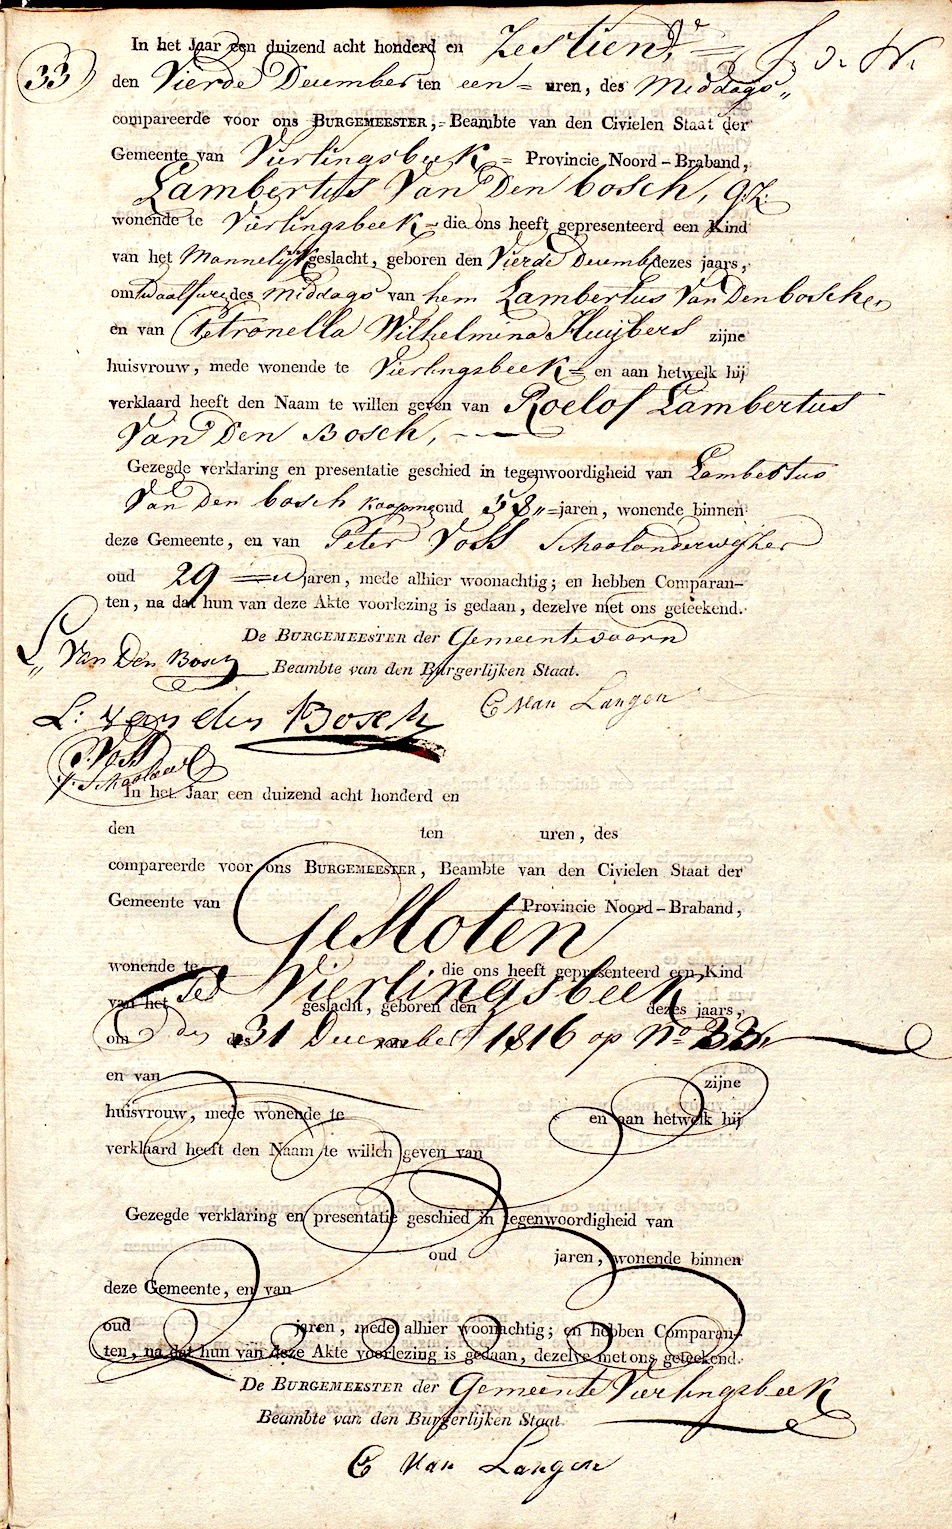 In het Jaar een duizend acht honderd en Zestien,
33
den Vierde December ten een = uren, des Middags,,
compareerde voor ons BURGEMEESTER, = Beambte van den Civielen Staat der
Gemeente van Vierlingsbeek = Provincie Noord-Braband,
Lambertus Van Den bosch,
wonende te Vierlingsbeek = die ons heeft gepresenteerd een Kind
van het Mannelijk geslacht, geboren den Vierde Decemb dezes jaars,
om twaalf ure des Middags van hem Lambertus Van Den bosch en
en van Petronella Wilhelmina Huijbers zijne
huisvrouw, mede wonende te Vierlingsbeek = en aan hetwelk hij
verklaard heeft den Naam te willen geven van Roelof Lambertus
Van Den Bosch,
Gezegde verklaring en presentatie geschied in tegenwoordigheid van Lambertus
Van Den bosch koopman oud 38,, = jaren, wonende binnen
deze Gemeente, en van Peter Voss Schoolonderwijser
oud 29 jaren, mede alhier woonachtig; en hebben Comparan-
ten, na dat hun van deze Akte voorlezing is gedaan, dezelve met ons geteekend.
De BURGEMEESTER der Gemeente voorn
L,, Van Den Bosch
Beambte van den Burgerlijken Staat.
C Van Langen
L: van den Bosch
P. Voss
In het Jaar een duizend acht honderd en
den ten uren, des
compareerde voor ons BURGEMEESTER, Beambte van den Civielen Staat der
Gemeente van Provincie Noord-Braband,
Gesloten
wonende te die ons heeft gepresenteerd een Kind
Vierlingsbeek
van het geslacht, geboren den dezes jaars,
om des van
den 31 December 1816 op No 33,
en van zijne
huisvrouw, mede wonende te en aan hetwelk hij
verklaard heeft den Naam te willen geven van
Gezegde verklaring en presentatie geschied in tegenwoordigheid van
oud jaren, wonende binnen
deze Gemeente, en van
oud jaren, mede alhier woonachtig; en hebben Comparan-
ten, na dat hun van deze Akte voorlezing is gedaan, dezelve met ons geteekend.
De BURGEMEESTER der Gemeente Vierlingsbeek
Beambte van den Burgerlijken Staat.
C Van Langen